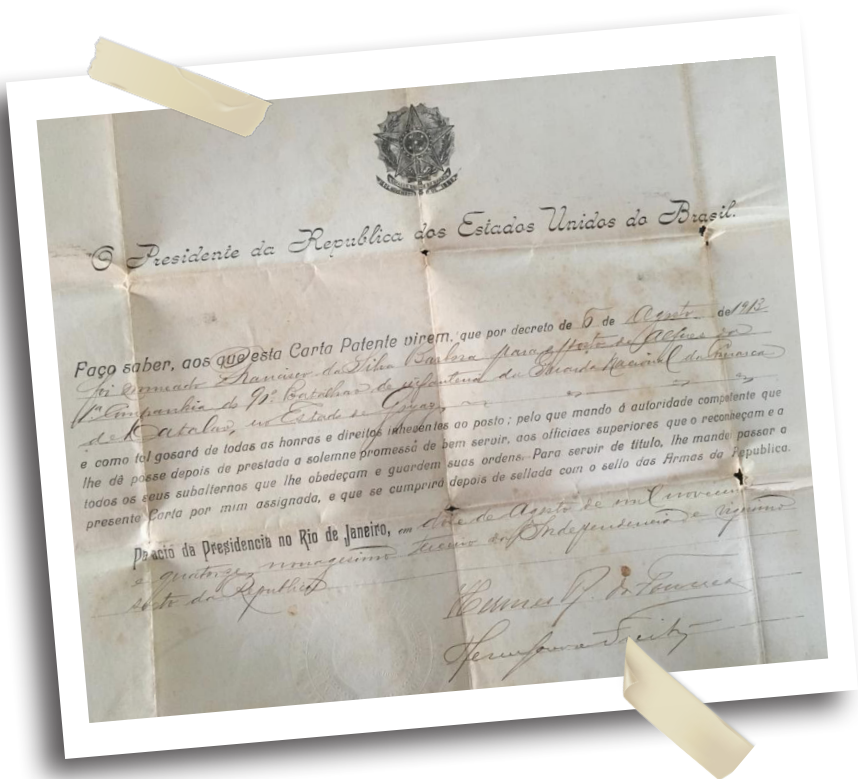 O Presidente da Republica dos Estados Unidos do Brasil.
Faço saber, aos que esta Carta Patente virem, que por decreto de 6 de Agosto de 1913
foi nomeado Francisco da Silva Barbosa para o posto de Alferes da
1ª Companhia do 91º Batalhão de infantaria da Guarda Nacional da Comarca
de Catalão, no Estado de Goyaz,
e como tal gosará de todas as honras e direitos inherentes ao posto; pelo que mando á autoridade competente que
lhe dê posse depois de prestada a solemne promessa de bem servir, aos officiaes superiores que o reconheçam e a
todos os seus subalternos que lhe obedeçam e guardem suas ordens. Para servir de titulo, lhe mandei passar a
presente Carta por mim assignada, e que se cumprirá depois de sellada com o sello das Armas da Republica.
Palacio da Presidencia no Rio de Janeiro, em doze de Agosto de mil novecentos
e quatorze, nonagesimo terceiro da Independencia e vigesimo
sexto da Republica
Hermes R. da Fonseca